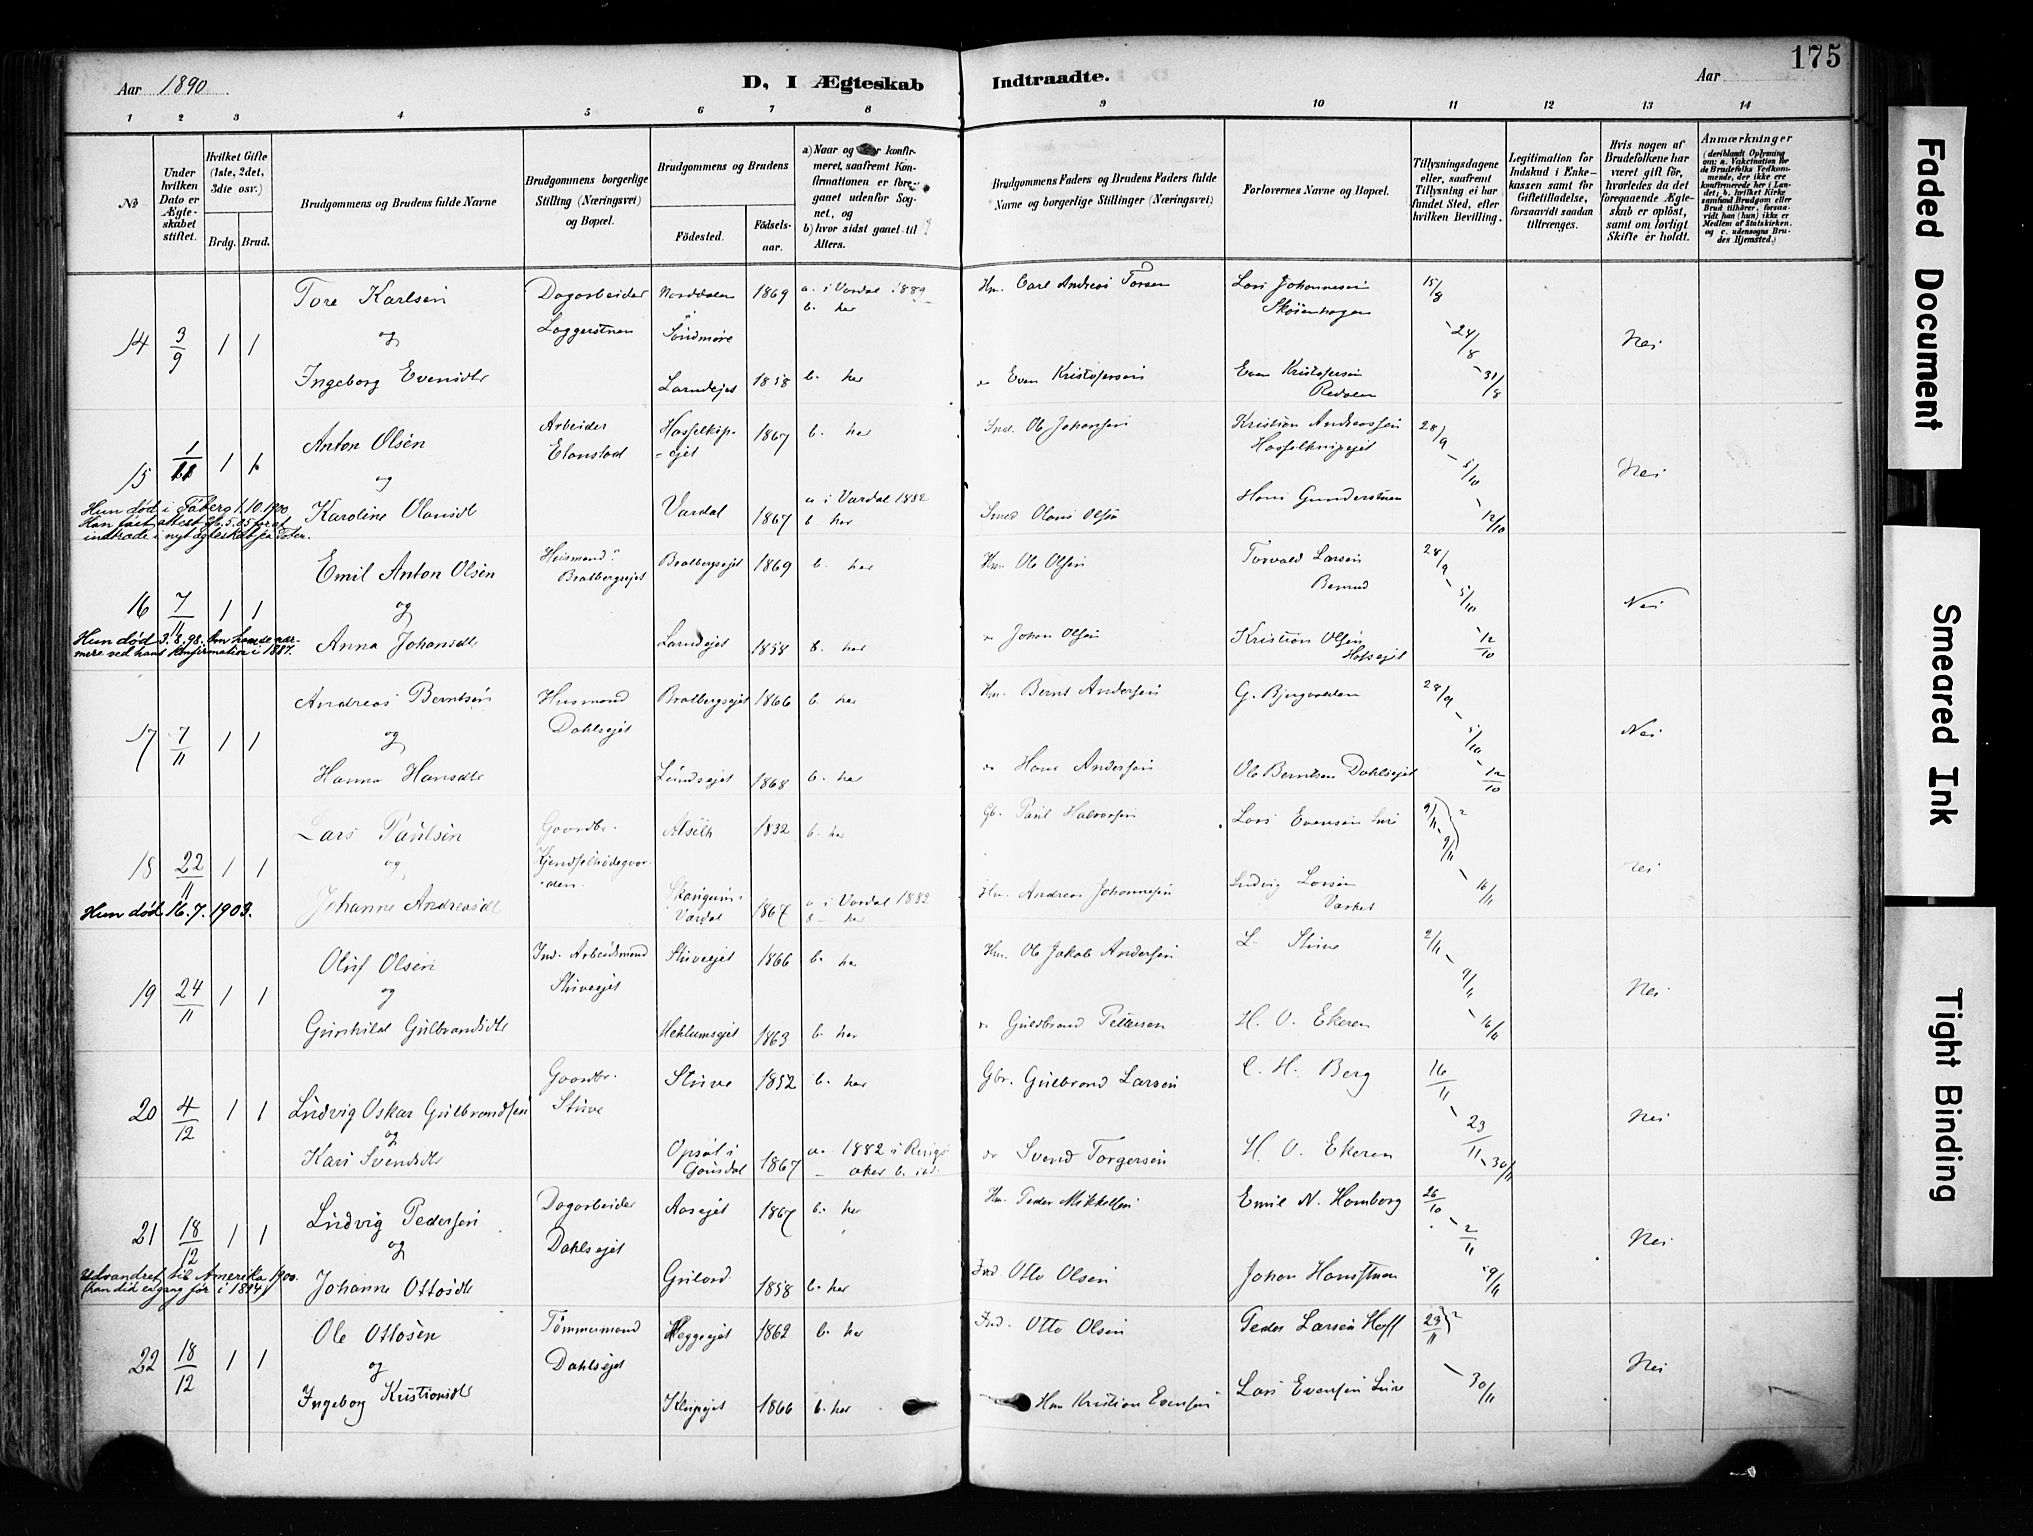 175
Aar 1890
D, I Ægteskab
Indtraadte.
Aar
1 2 3 4 5 6 7 8 9 10 11 12 13 14
No
Under hvilken Dato er Ægteskabet stiftet.
Hvilket Gifte (1ste, 2det, 3die osv.)
Brdg. Brud.
Brudgommens og Brudens fulde Navne
Brudgommens borgerlige Stilling (Næringsvei) og Bopæl.
Brudgommens og Brudens
Fødested.
Fødselsaar.
a) Naar og konfirmeret, saafremt Konfirmationen er foregaaet udenfor Sognet, og
b) hvor sidst gaaet til Alters.
Brudgommens Faders og Brudens Faders fulde Navne og borgerlige Stillinger (Næringsvei)
Forlovernes Navne og Bopæl.
Tillysningsdagene eller, saafremt Tillysning ei har fundet Sted, efter hvilken Bevilling.
Legitimation for Indskud i Enkekassen samt for Giftetilladelse, forsaavidt saadan tiltrænges.
Hvis nogen af Brudefolkene har været gift før, hvorledes da det foregaaende Ægteskab er opløst, samt om lovligt Skifte er holdt.
Anmærkninger
(deriblandt Oplysning om: a. Vakcination for de Brudefolks Vedkommende, der ikke ere konfirmerede her i Landet; b. hvilket Kirkesamfund Brudgom eller Brud tilhører, forsaavidt han (hun) ikke er Medlem af Statskirken, og c. udensogns Brudes Hjemsted.)
14 3/9 1 1
Tore Karlsen
og
Ingeborg Evensdtr
Dagarbeider
Norddalen Søndmøre 1869
a. i Vardal 1889
b. her
1858 b. her
Hm. Carl Andreas Torsen
" Even Kristofersen
Lars Johannesen
Even Kristofersen
15/8 - 24/8 - 31/8
Nei
15 1/11 1 1
Anton Olsen
og
Karoline Olausdtr
Arbeider
1867 b. her
Vardal 1867
a. i Vardal 1882
b. her
Ole Johansen
Olaus Olsen
Kristian Andreassen
28/9 - 5/10 - 12/10
Nei
Hun død i Faaberg 1.10.1900
Han faet attest 26.5.05 for at
indtræde i nyt ægteskab fra Toten.
16 7/11 1 1
Emil Anton Olsen
og
Anna Johansdtr
Husmand
Bratbergsejet
Bratbergsejet 1869 b. her
1858 b. her
Hm. Ole Olsen
" Johan Olsen
Torvald Larsen
Kristian Olsen
28/9 - 5/10 - 12/10
Nei
Hun død 3.8.98. Om ham se nær-
mere ved hans konfirmation i 1887.
17 7/11 1 1
Andreas Berntsen
og
Hanna Hansdtr
Husmand
Dahlsejet
Bratbergsejet 1866 b. her
Lundsejet 1868 b. her
Hm. Bernt Andersen
" Hans Andersen
Ole Berntsen Dahlsejet
28/9 - 5/10 - 12/10
Nei
18 22/11 1 1
Lars Paulsen
og
Johanne Andreasdtr
Gaardbr.
1832 b. her
Vardal 1867
a. i Vardal 1882
b. her
Gb. Paul Halvorsen
Hm. Andreas Johannesen
Lars Evensen
Ludvig Larsen
9/11 - 16/11
Nei
Hun død 16.7.1903.
19 24/11 1 1
Oluf Olsen
og
Gunhild Gulbrandsdtr
Ind. Arbeidsmand
Stuveejet
Stuveejet 1866 b. her
Heklumsejet 1863 b. her
Hm. Ole Jakob Andersen
" Guldbrand Pettersen
L. Stuve
H. O. Ekeren
2/11 - 9/11 - 16/11
Nei
20 4/12 1 1
Ludvig Oskar Gulbrandsen
og
Kari Svendsdtr
Gaardbr.
Stuve
Stuve 1852 b. her
Opsal i
Gausdal 1867
a. 1882 i Ringsaker
Gbr. Gulbrand Larsen
" Svend Torgersen
C. H. Berg
H. O. Ekeren
16/11 - 23/11 - 30/11
Nei
21 18/12 1 1
Ludvig Pedersen
og
Johanne Ottosdtr
Dagarbeider
Dahlsejet
Aasejet 1867 b. her
1858 b. her
Hm. Peder Mikkelsen
Ind. Otto Olsen
Emil N. Homborg
26/10 - 2/11 - 9/11
Nei
Udvandret til Amerika 1900.
(han did engang før i 1894)
22 18/12 1 1
Ole Ottosen
og
Ingeborg Kristiansdtr
Tømmermand
Dahlsejet
Heggeejet 1862 b. her
1866 b. her
Ind. Otto Olsen
Hm Kristian Evensen
Peder Larsen Hoff
Lars Evensen
23/11 - 30/11
Nei
Faded Document
Smeared Ink
Tight Binding